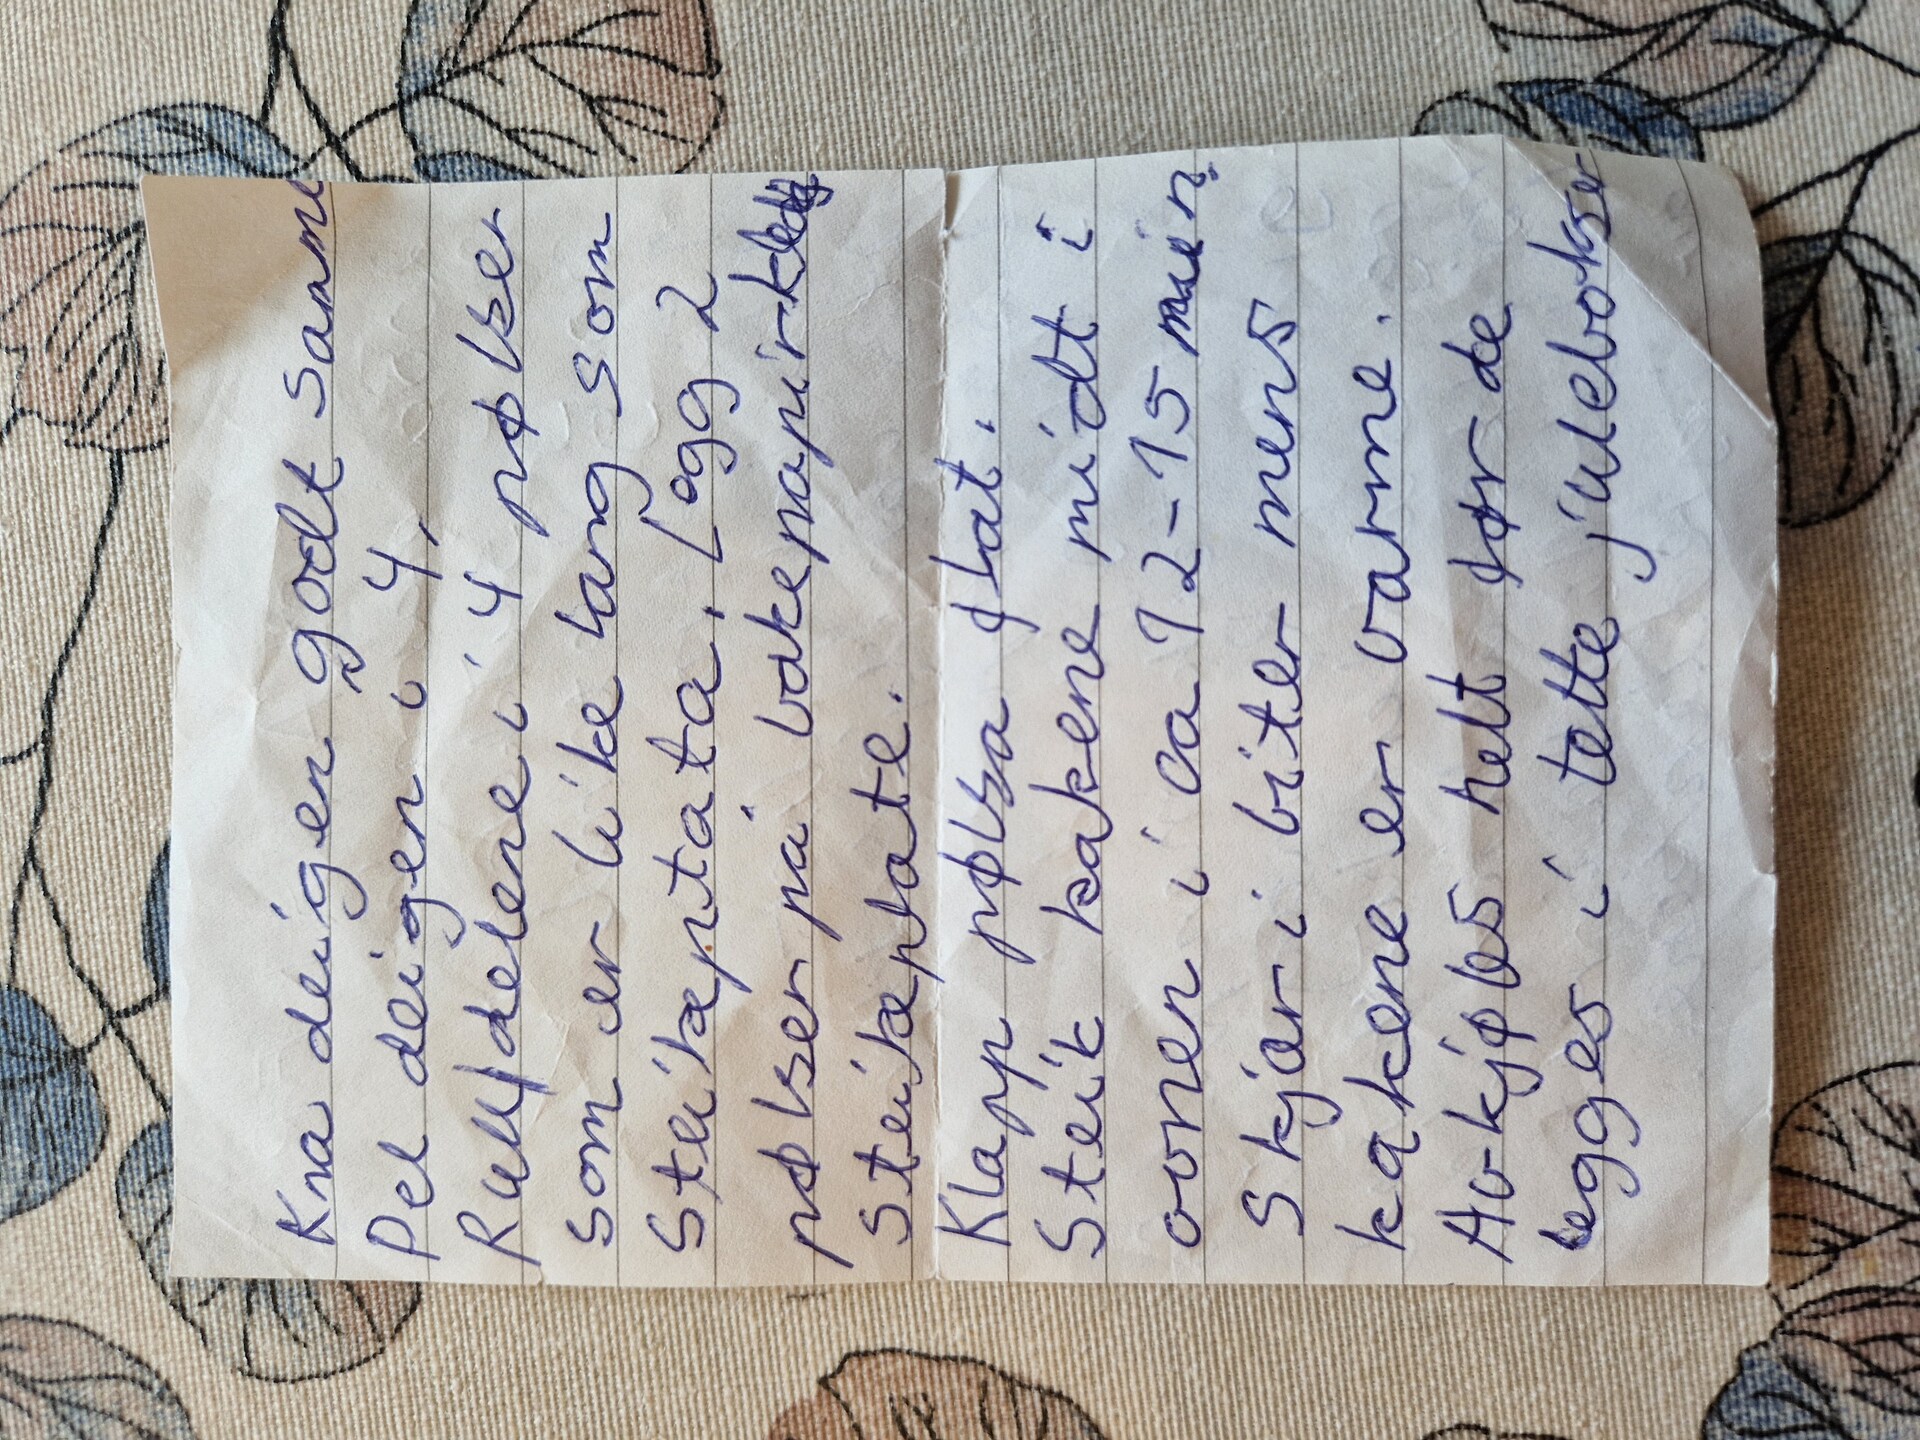 Kna deigen godt samme
Del deigen i 4,
Rull delene i 4 pølser
som er like lang som
Steikeplata. Legg 2
pølser på bakepapirkledd
steikeplate.
Klapp pølsa flat.
Steik kakene midt i
ovnen i ca 12-15 min.
Skjær i biter mens
kakene er varme.
Avkjøles helt før de
legges i tette julebokser